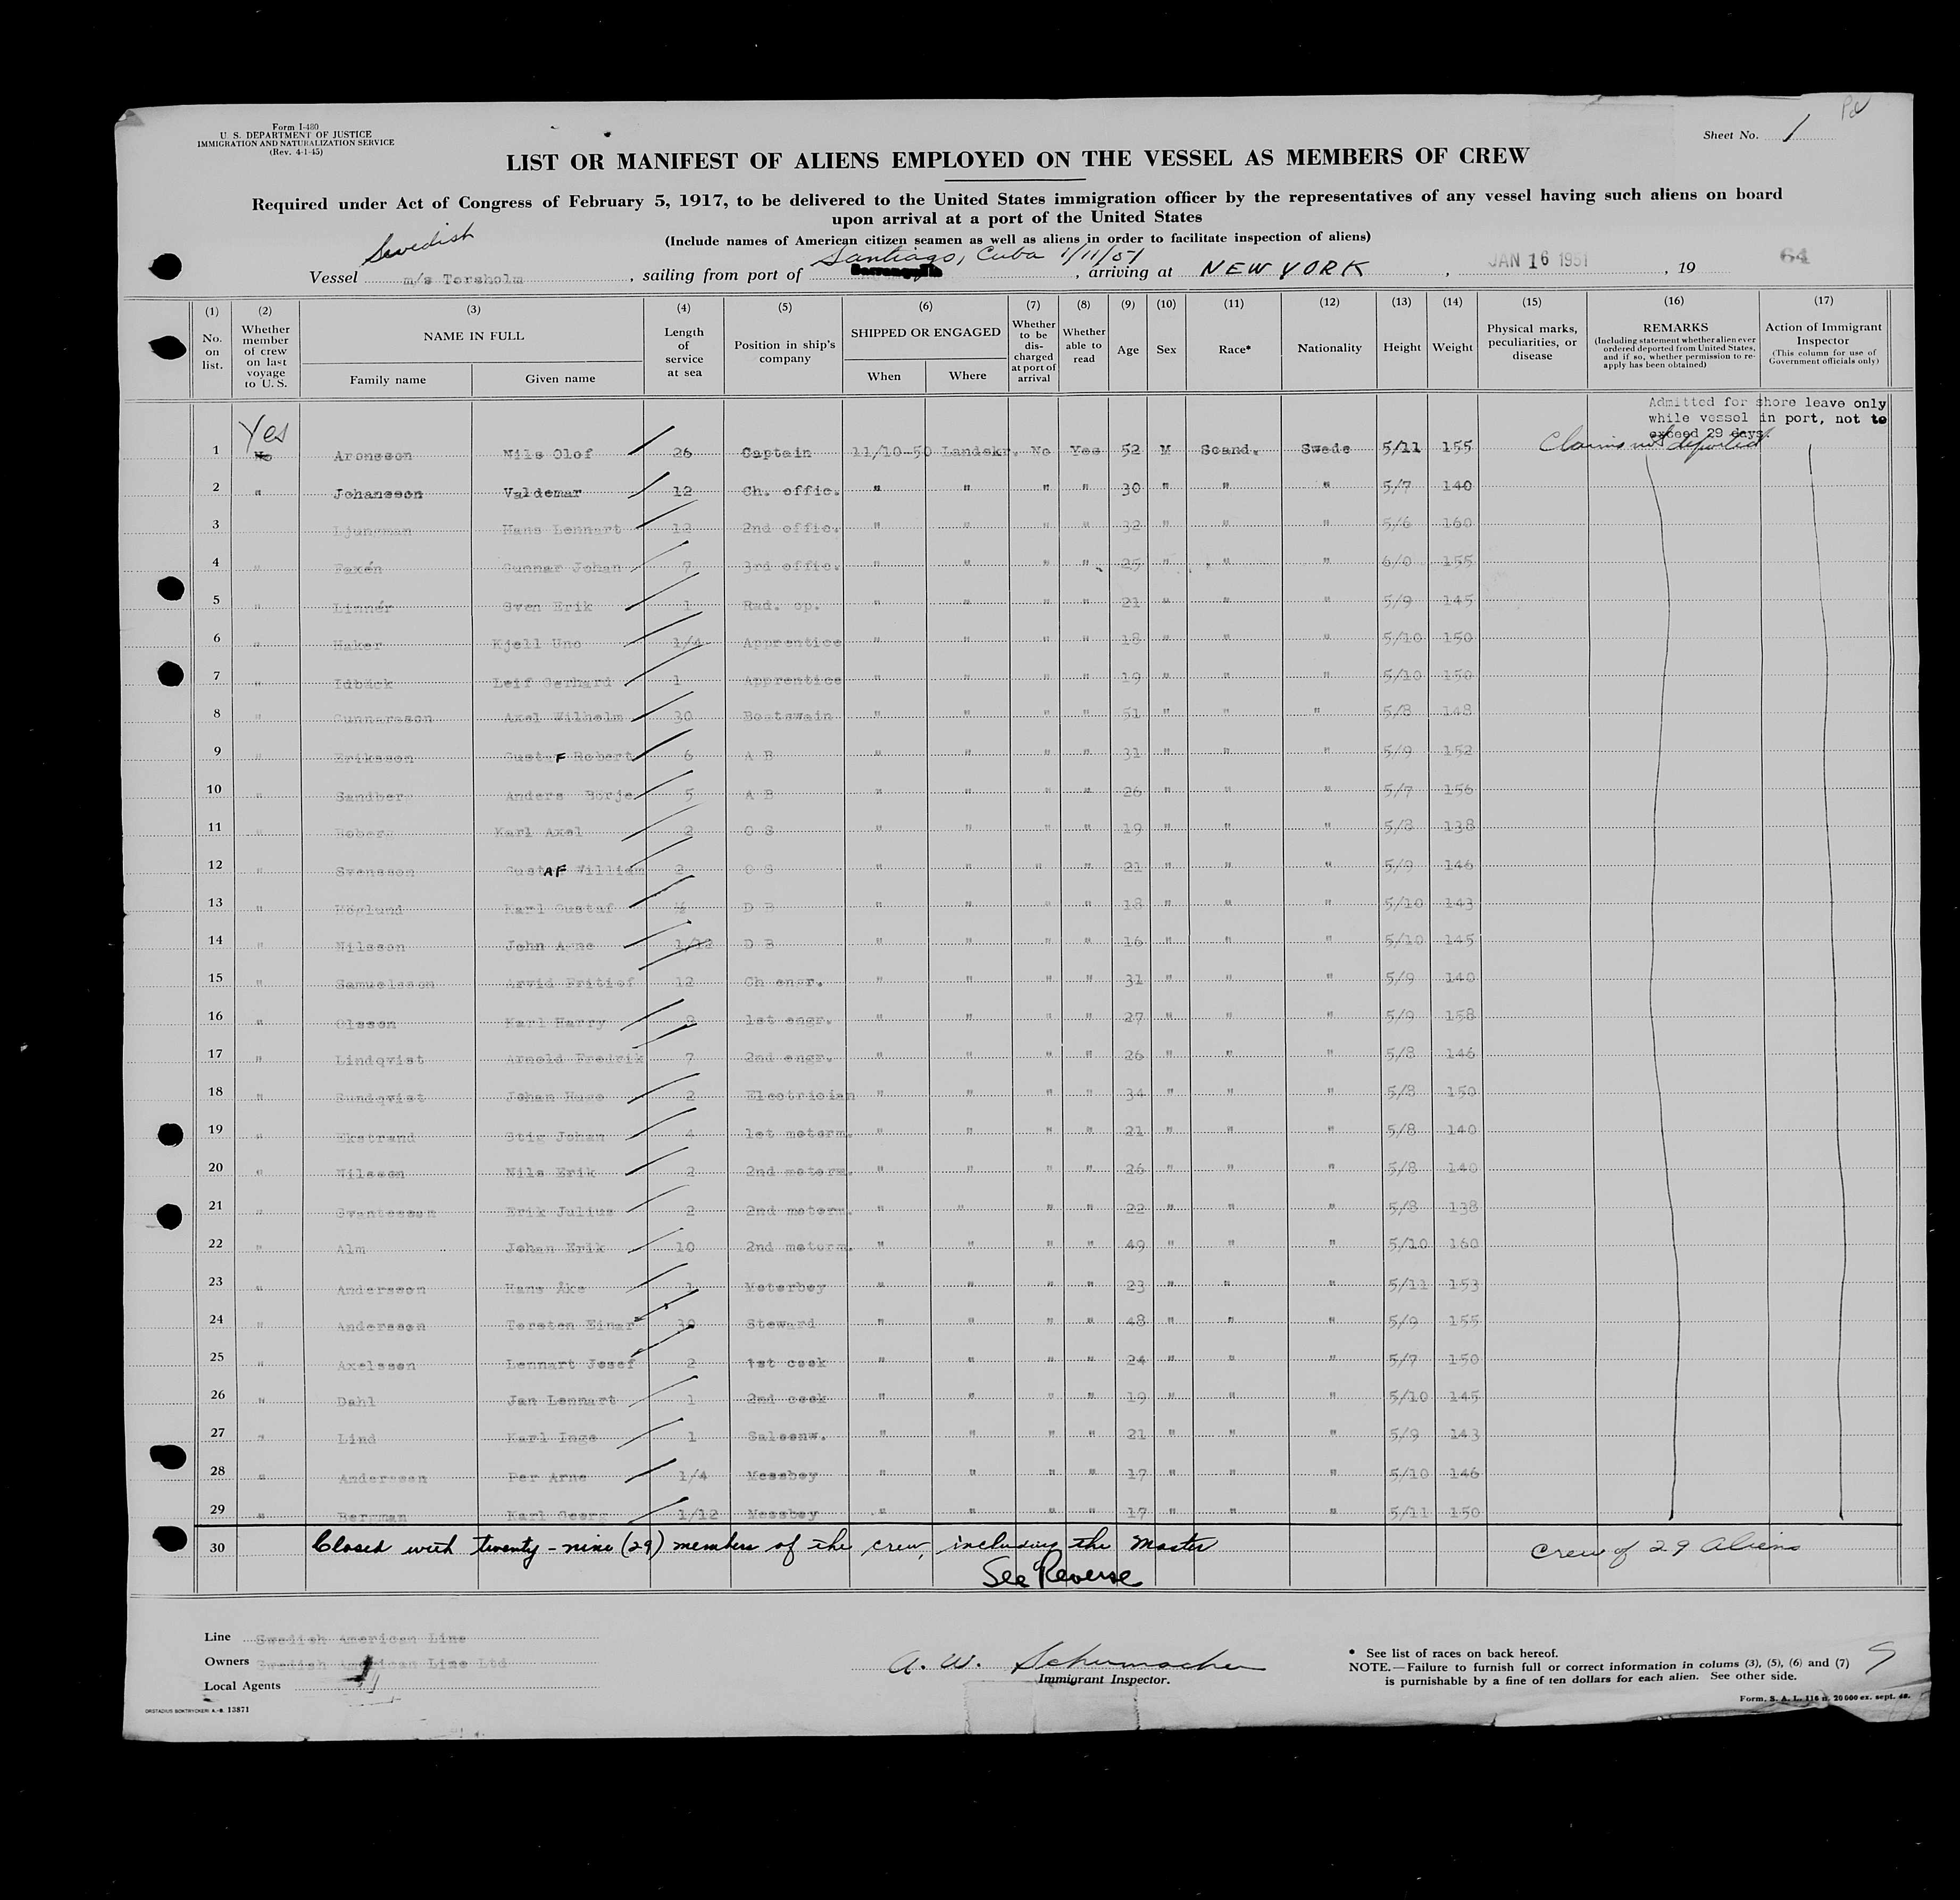 Form I-480
U. S. DEPARTMENT OF JUSTICE
IMMIGRATION AND NATURALIZATION SERVICE
(Rev. 4-1-45)
Sheet No. 1
LIST OR MANIFEST OF ALIENS EMPLOYED ON THE VESSEL AS MEMBERS OF CREW
Required under Act of Congress of February 5, 1917, to be delivered to the United States immigration officer by the representatives of any vessel having such aliens on board
upon arrival at a port of the United States
(Include names of American citizen seamen as well as aliens in order to facilitate inspection of aliens)
Swedish Santiago, Cuba 1/11/51
Vessel m/s Torsholm, sailing from port of Barranquilla, arriving at NEW YORK, JAN 16 1951, 19 64
(1) (2) (3) (4) (5) (6) (7) (8) (9) (10) (11) (12) (13) (14) (15) (16) (17)
No. on list. Whether member of crew on last voyage to U. S. NAME IN FULL Family name Given name Length of service at sea Position in ship's company SHIPPED OR ENGAGED When Where Whether to be discharged at port of arrival Whether able to read Age Sex Race* Nationality Height Weight Physical marks, peculiarities, or disease REMARKS (Including statement whether alien ever ordered deported from United States, and if so, whether permission to reapply has been obtained) Action of Immigrant Inspector (This column for use of Government officials only)
Admitted for shore leave only
while vessel in port, not to
exceed 29 days.
Yes Claims not deported
1 No Aronsson Nils Olof 26 Captain 11/10-50 Landskr. No Yes 52 M Scand. Swede 5/11 155
2 " Johansson Valdemar 12 Ch. offic. " " " " 30 " " " 5/7 140
3 Ljungman Hans Lennart 12 2nd offic. " " " " 32 " " " 5/6 160
4 " Faxén Gunnar Johan 7 3rd offic. " " " " 25 " " " 6/0 155
5 " Linnér Sven Erik 1 Rad. op. " " " " 21 " " " 5/9 145
6 " Haker Kjell Uno 1/4 Apprentice " " " " 18 " " " 5/10 150
7 " Idbäck Leif Gerhard 1 Apprentice " " " " 19 " " " 5/10 150
8 " Gunnarsson Axel Wilhelm 30 Boatswain " " " " 51 " " " 5/8 148
9 " Eriksson Gustaf Robert 6 A B " " " " 31 " " " 5/9 152
10 " Sandberg Anders Börje 5 A B " " " " 26 " " " 5/7 156
11 " Karl Axel 2 O S " " " " 19 " " " 5/8 138
12 " Svensson Gustaf William 2 O S " " " " 21 " " " 5/9 146
13 " Höglund Karl Gustaf ½ D B " " " " 18 " " " 5/10 143
14 " Nilsson John Arne 1/12 D B " " " " 16 " " " 5/10 145
15 " Samuelsson Arvid Fritiof 12 Ch engr. " " " " 31 " " " 5/9 140
16 " Olsson Karl Harry 1st engr. " " " " 27 " " " 5/9 158
17 " Lindqvist Arnold Fredrik 7 2nd engr. " " " " 26 " " " 5/8 146
18 " Sundqvist Johan Hugo 2 Electrician " " " " 34 " " " 5/8 150
19 " Ekstrand Stig Johan 4 1st motorm. " " " " 21 " " " 5/8 140
20 " Nilsson Nils Erik 2 2nd motorm. " " " " 26 " " " 5/8 140
21 " Svantesson Erik Julius 2 2nd motorm. " " " " 22 " " " 5/8 138
22 " Alm Johan Erik 10 2nd motorm. " " " " 49 " " " 5/10 160
23 " Andersson Hans Åke 1 Motorboy " " " " 23 " " " 5/11 153
24 " Andersson Torsten Einar 30 Steward " " " " 48 " " " 5/9 155
25 " Axelsson Lennart Josef 2 1st cook " " " " 24 " " " 5/7 150
26 " Dahl Jan Lennart 1 2nd cook " " " " 19 " " " 5/10 145
27 " Lind Karl Inge 1 Saloonw. " " " " 21 " " " 5/9 143
28 " Andersson Per Arne 1/4 Messboy " " " " 17 " " " 5/10 146
29 " Bergman Karl Georg 1/12 Messboy " " " " 17 " " " 5/11 150
30 Closed with twenty-nine (29) members of the crew, including the Master crew of 29 Aliens
See Reverse
Line Swedish American Line
Owners Swedish American Line Ltd
Local Agents
A. W. Schumacher
Immigrant Inspector.
* See list of races on back hereof.
NOTE.—Failure to furnish full or correct information in colums (3), (5), (6) and (7)
is punishable by a fine of ten dollars for each alien. See other side.
ORSTADIUS BOKTRYCKERI A.-B. 13871
Form. S. A. L. 116 n. 20 000 ex. sept. 48.